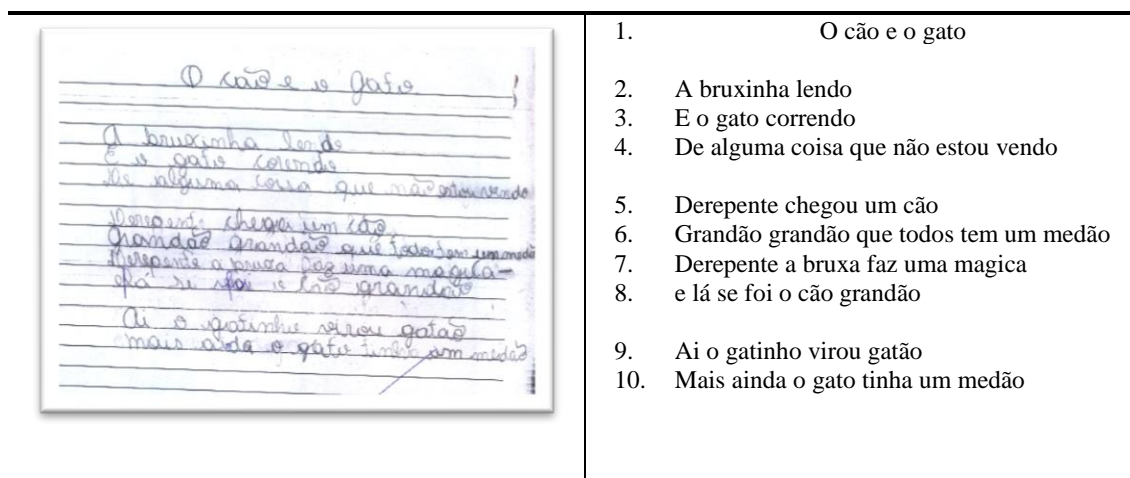 O cão e o gato
A bruxinha lendo
E o gato corendo
De alguma coisa que não estou vendo
Derepente chega um cão
Grandão grandão que todos tem um medão
Derepente a bruxa faz uma magica
e lá se foi o cão grandão
Ai o gatinho virou gatão
mais aida o gato tinha um medão
1. O cão e o gato
2. A bruxinha lendo
3. E o gato correndo
4. De alguma coisa que não estou vendo
5. Derepente chegou um cão
6. Grandão grandão que todos tem um medão
7. Derepente a bruxa faz uma magica
8. e lá se foi o cão grandão
9. Ai o gatinho virou gatão
10. Mais ainda o gato tinha um medão